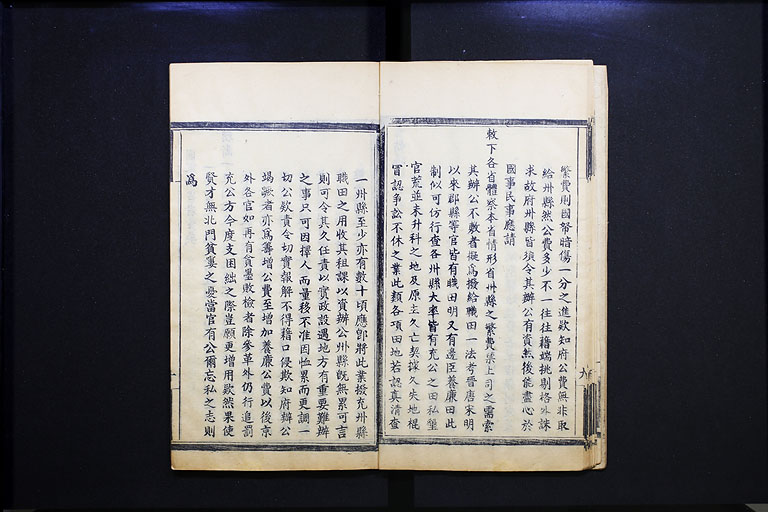 繁費則國帑暗傷一分之進款知府公費無非取
給州縣然公費多少不一往往藉端挑剔格外誅
求故府州縣皆須令其辦公有資然後能盡心於
國事民事應請
敕下各省體察本省情形省州縣之繁費禁上司之需索
其辦公不敷者擬爲撥給職田一法考晉唐宋明
以來郡縣等官皆有職田明又有邊臣養廉田此
制似可仿行查各州縣大率皆有充公之田私墾
官荒並未升科之地及原主久亡契據久失地棍
冒認爭訟不休之業此類各項田地若認眞清查
一州縣至少亦有數十頃應卽將此業撥充州縣
職田之用收其租課以資辦公州縣旣無累可言
則可令其久任責以實政設遇地方有重要難辦
之事只可因擇人而量移不准因恤累而更調一
切公欵責令切實報解不得藉口侵欺知府辦公
竭蹶者亦爲籌增公費至增加養廉公費以後京
外各官如再有貪墨敗檢者除參革外仍行追罰
充公方今度支困絀之際豈願更增用款然果使
賢才無北門貧窶之憂當官有公爾忘私之志則
爲
九